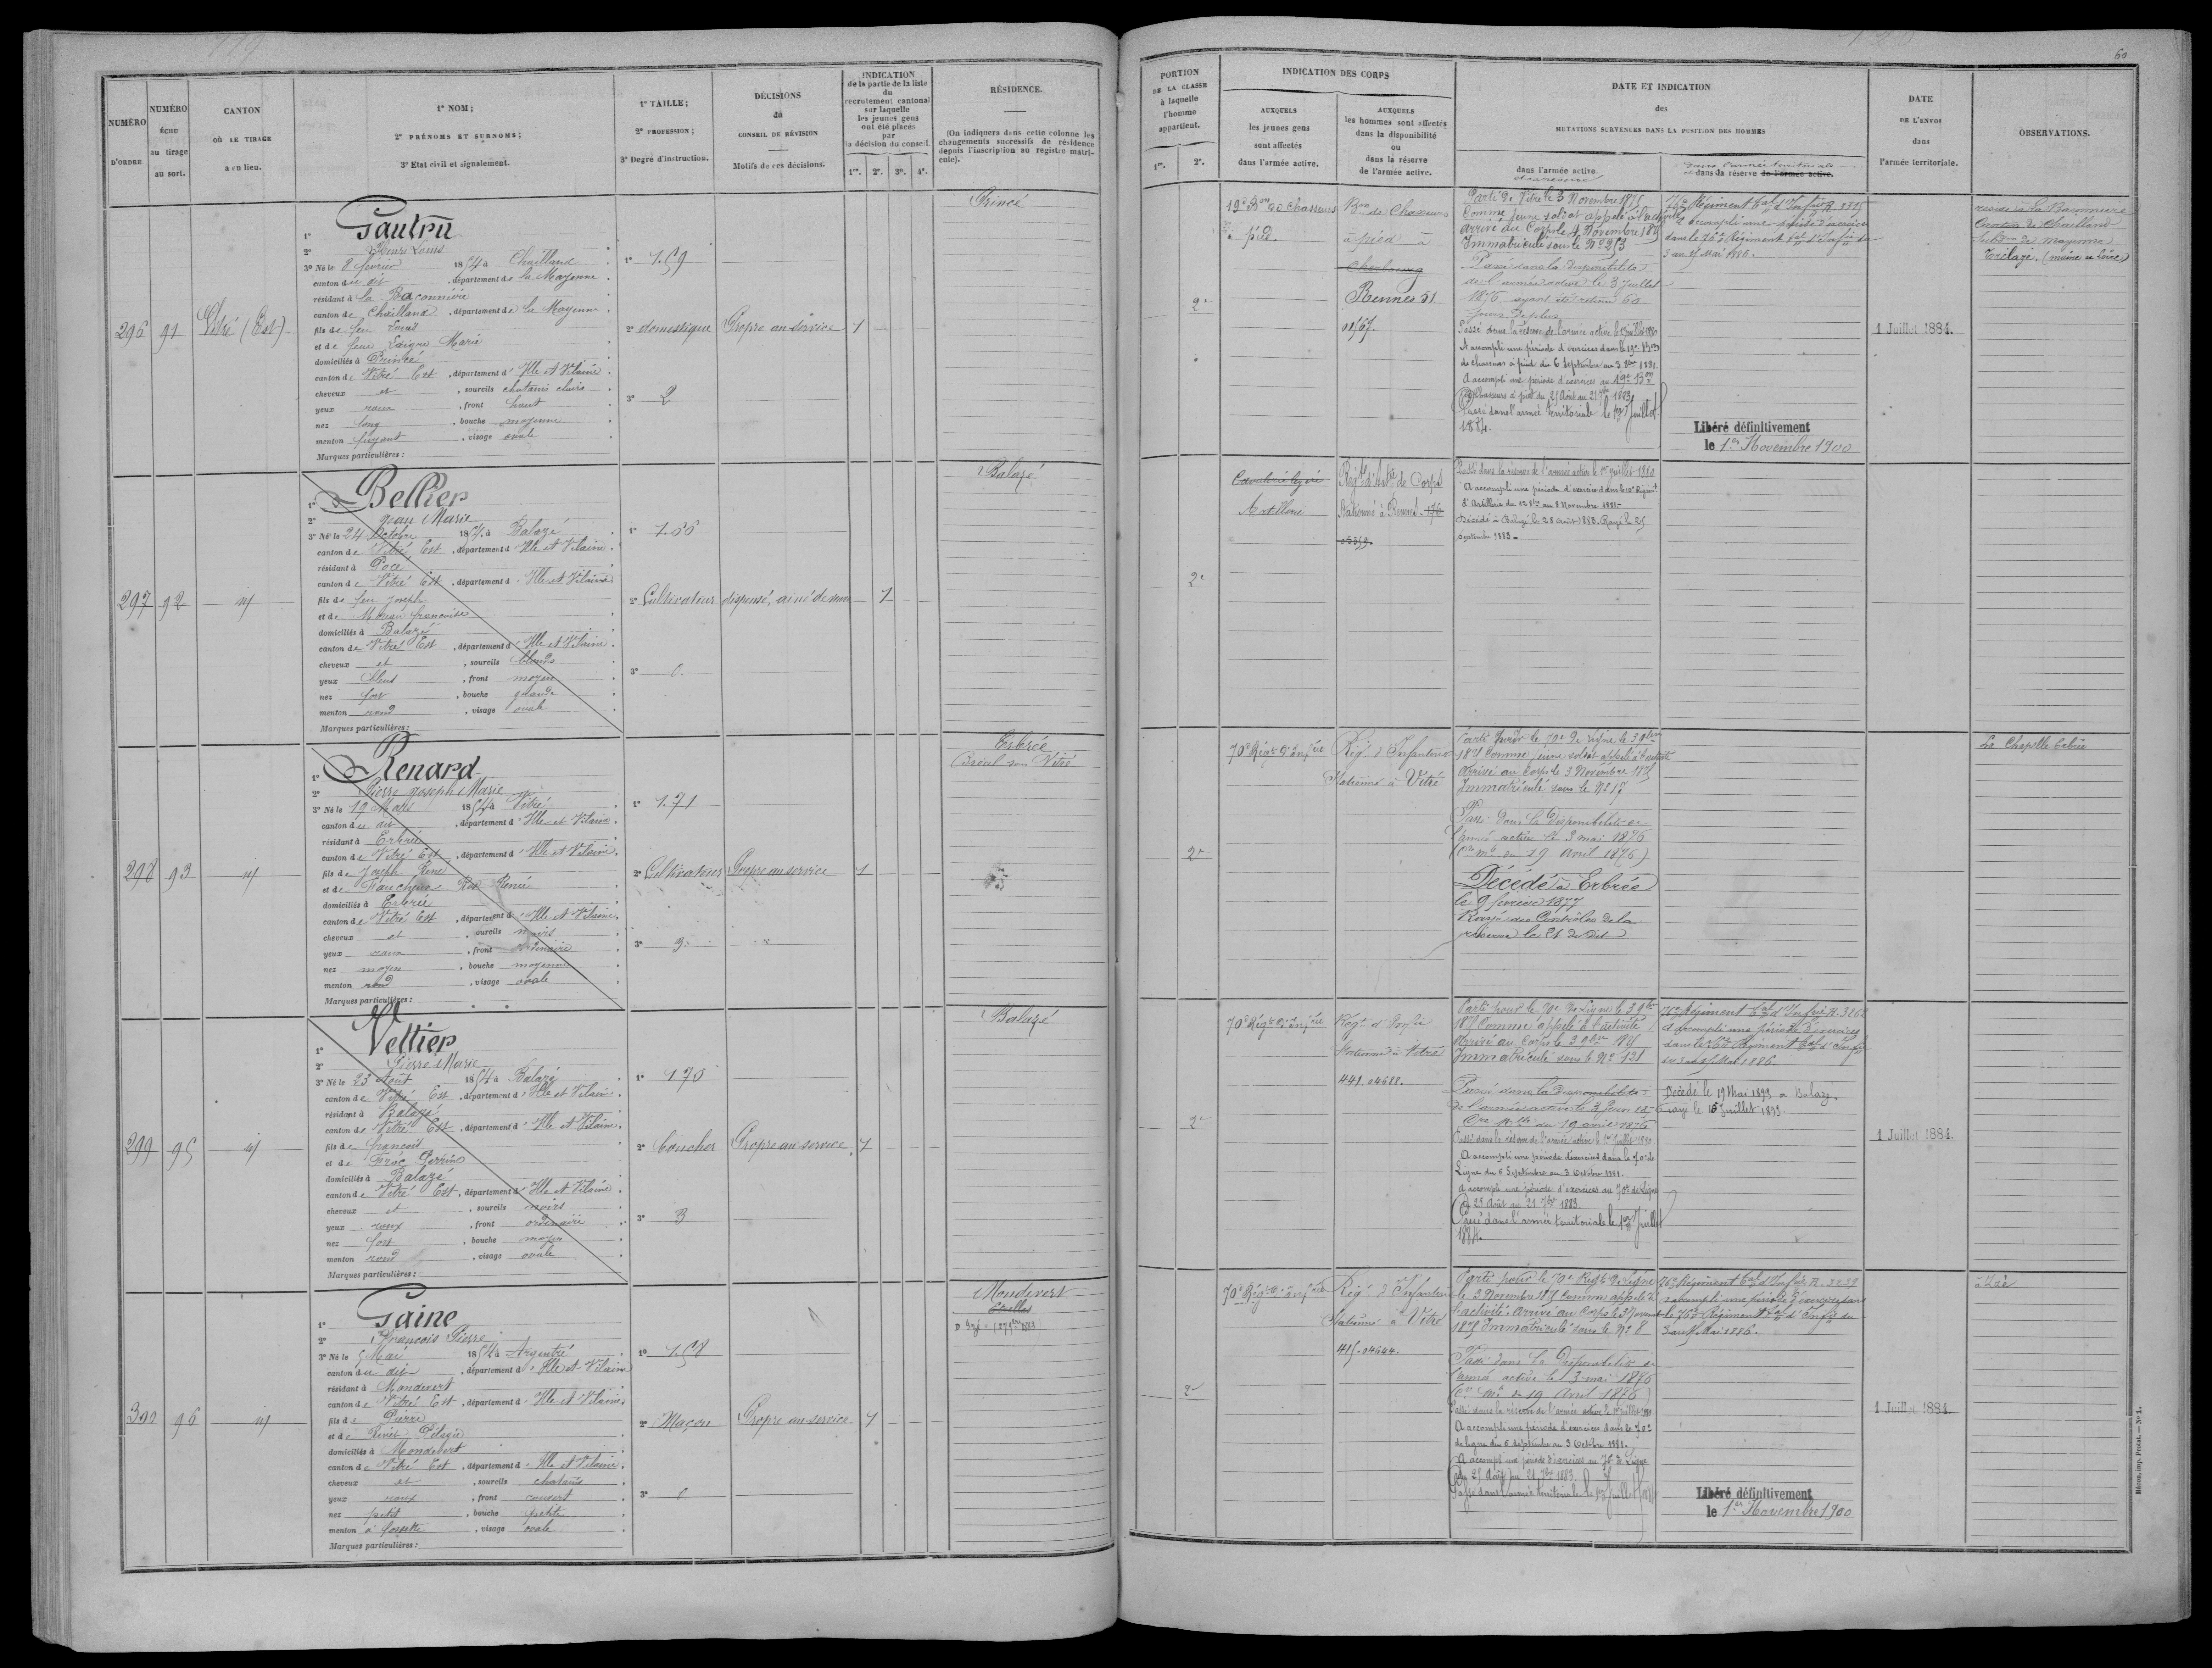 119
NUMÉRO D'ORDRE
NUMÉRO ÉCHU au tirage au sort.
CANTON OÙ LE TIRAGE a eu lieu.
1° NOM;
2° PRÉNOMS ET SURNOMS;
3° État civil et signalement.
1° TAILLE;
2° PROFESSION;
3° Degré d'instruction.
DÉCISIONS du CONSEIL DE RÉVISION
Motifs de ces décisions.
INDICATION
de la partie de la liste
du
recrutement cantonal
sur laquelle
les jeunes gens
ont été placés
par
la décision du conseil.
1re. 2e. 3e. 4e.
RÉSIDENCE.
(On indiquera dans cette colonne les
changements successifs de résidence
depuis l'inscription au registre matri-
cule).
296 91 Vitré (Est)
1° Gautru
2° Henri Louis
3° Né le 8 février 1854 à Chailland
canton du dit, département de la Mayenne
résidant à la Baconnière
canton de Chailland, département de la Mayenne
fils de feu Louis
et de feue Marie
domiciliés à Princé
canton de Vitré Est, département d'Ille et Vilaine
cheveux et, sourcils chatains clairs
yeux roux, front haut
nez long, bouche moyenne
menton fuyant, visage ovale
Marques particulières :
1° 1.59
2° domestique
3° 2
Propre au service 1
Princé
297 92 id
1° Bellier
2° Jean Marie
3° Né le 24 Octobre 1854 à Balazé
canton de Vitré Est, département d'Ille et Vilaine
résidant à Pocé
canton de Vitré Est, département d'Ille et Vilaine
fils de feu Joseph
et de Françoise
domiciliés à Balazé
canton de Vitré Est, département d'Ille et Vilaine
cheveux et, sourcils blonds
yeux bleus, front moyen
nez fort, bouche grande
menton rond, visage ovale
Marques particulières :
1° 1.66
2° Cultivateur
3° 0
dispensé, ainé de 1
Balazé
298 93 id
1° Renard
2° Pierre Joseph Marie
3° Né le 19 Mars 1854 à Vitré
canton du dit, département d'Ille et Vilaine
résidant à Erbrée
canton de Vitré Est, département d'Ille et Vilaine
fils de Joseph René
et de Faucheux Renée
domiciliés à Erbrée
canton de Vitré Est, département d'Ille et Vilaine
cheveux et, sourcils noirs
yeux roux, front ordinaire
nez moyen, bouche moyenne
menton rond, visage ovale
Marques particulières :
1° 1.71
2° Cultivateur
3° 3
Propre au service 1
Erbrée
Bréal sous Vitré
299 95 id
1° Vettier
2° Pierre Marie
3° Né le 23 Août 1854 à Balazé
canton de Vitré Est, département d'Ille et Vilaine
résidant à Balazé
canton de Vitré Est, département d'Ille et Vilaine
fils de François
et de Froc Perrine
domiciliés à Balazé
canton de Vitré Est, département d'Ille et Vilaine
cheveux et, sourcils noirs
yeux roux, front ordinaire
nez fort, bouche moyen
menton rond, visage ovale
Marques particulières :
1° 1.70
2°
3° 3
Propre au service 1
Balazé
300 96 id
1° Gaine
2° François Pierre
3° Né le 5 Mai 1854 à Argentré
canton du dit, département d'Ille et Vilaine
résidant à Mondevert
canton de Vitré Est, département d'Ille et Vilaine
fils de Pierre
et de
domiciliés à Mondevert
canton de Vitré Est, département d'Ille et Vilaine
cheveux et, sourcils chatains
yeux roux, front couvert
nez petit, bouche petite
menton à fossette, visage ovale
Marques particulières :
1° 1.58
2° Maçon
3° 0
Propre au service 1
Mondevert
60
PORTION
DE LA CLASSE
à laquelle
l'homme
appartient.
1re. 2e.
INDICATION DES CORPS
AUXQUELS
les jeunes gens
sont affectés
dans l'armée active.
AUXQUELS
les hommes sont affectés
dans la disponibilité
ou
dans la réserve
de l'armée active.
DATE ET INDICATION
des
MUTATIONS SURVENUES DANS LA POSITION DES HOMMES
dans l'armée active.
dans l'armée territoriale
et dans sa réserve de l'armée active.
DATE
DE L'ENVOI
dans
l'armée territoriale.
OBSERVATIONS.
2e
19e Bon de Chasseurs
à pied.
Bon de Chasseurs
à pied à
Cherbourg
Rennes 31
Parti de Vitré le 3 Novembre 1875
Comme jeune soldat appelé à l'activité
arrivé au Corps le 4 Novembre 1875
Immatriculé sous le No 253
Passé dans la disponibilité
de l'armée active le 3 juillet
1876, ayant été retenu 60
jours de plus
Passé dans la réserve de l'armée active le 1er juillet 1880
A accompli une période d'exercices dans le 19e Bon
de chasseurs à pied du 6 Septembre au 3 8bre 1881.
A accompli une période d'exercices au 19e Bon
de Chasseurs à pied du 25 Août au 21 7bre 1883
Passé dans l'armée territoriale le 1er Juillet
1884.
76e Régiment tal d'Infrie R. 3315
a accompli une période d'exercices
dans le 76e Régiment tal d'Infie du
3 au 15 Mai 1886.
Libéré définitivement
le 1er Novembre 1900
1 Juillet 1884.
reside à La Baconnière
Canton de Chailland
Subdon de Mayenne
Trélazé (Maine et Loire)
2e
Cavalerie légère
Artillerie
Régt d'Artie de Corps
Stationné à Rennes
Passé dans la réserve de l'armée active le 1er juillet 1880
A accompli une période d'exercices dans le 10e Régimt
d'Artillerie du 12 8bre au 8 Novembre 1881.
Décédé à Balazé le 28 août 1883. Rayé le 25
septembre 1883.
2e
70e Régt d'Infrie
Régt d'Infanterie
Stationné à Vitré
Parti pour le 70e de ligne le 3 9bre
1875 Comme jeune soldat appelé à l'activité
Arrivé au Corps le 3 Novembre 1875
Immatriculé sous le No 17
Passé dans la disponibilité de
l'armée active le 3 mai 1876
(Cre Mle du 19 Avril 1876)
Décédé à Erbrée
le 9 février 1877
Rayé des Contrôles de la
réserve le 21 du dit
La Chapelle Erbrée
2e
70e Régt d'Infrie
Régt d'Infie
Stationné à Vitré
441.04688.
Parti pour le 70e de Ligne le 3 9bre
1875 Comme appelé à l'activité
Arrivé au Corps le 3 9bre 1875
Immatriculé sous le No 121
Passé dans la disponibilité
de l'armée active le 3
Cre Mlle du 19 avril 1876
Passé dans la réserve de l'armée active le 1er Juillet 1880
A accompli une période d'exercices dans le 70e de
Ligne du 6 Septembre au 3 Octobre 1881.
A accompli une période d'exercices au 70e de Ligne
du 25 Août au 21 7bre 1883.
Passé dans l'armée territoriale le 1er Juillet
1884.
76e Régiment tal d'Infrie R. 326
a accompli une période d'exercices
dans le 76e Régiment tal d'Infie
du 3 au 15 Mai 1886.
Décédé le 19 Mai 1893 à Balazé.
rayé le 15 Juillet 1893.
1 Juillet 1884.
2e
70e Régt d'Infrie
Régt d'Infanterie
Stationné à Vitré
415.04644.
Parti pour le 70e Régt de Ligne
le 3 Novembre 1875 Comme appelé à
l'activité. Arrivé au Corps le 3 Novembre
1875 Immatriculé sous le No 8
Passé dans la disponibilité de
l'armée active le 3 mai 1876
(Cre Mle du 19 Avril 1876)
Passé dans la réserve de l'armée active le 1er juillet 1880
A accompli une période d'exercices dans le 70e
de ligne du 6 septembre au 3 Octobre 1881.
A accompli une période d'exercices au 70e de Ligne
du 25 Août au 21 7bre 1883
Passé dans l'armée territoriale le 1er Juillet 1884
76e Régiment tal d'Infie R. 3239
a accompli une période d'exercices dans
le 76e Régiment tal d'Infie du
3 au 15 Mai 1886.
Libéré définitivement
le 1er Novembre 1900
1 Juillet 1884.
Mâcon, imp. Protat. — No 1.